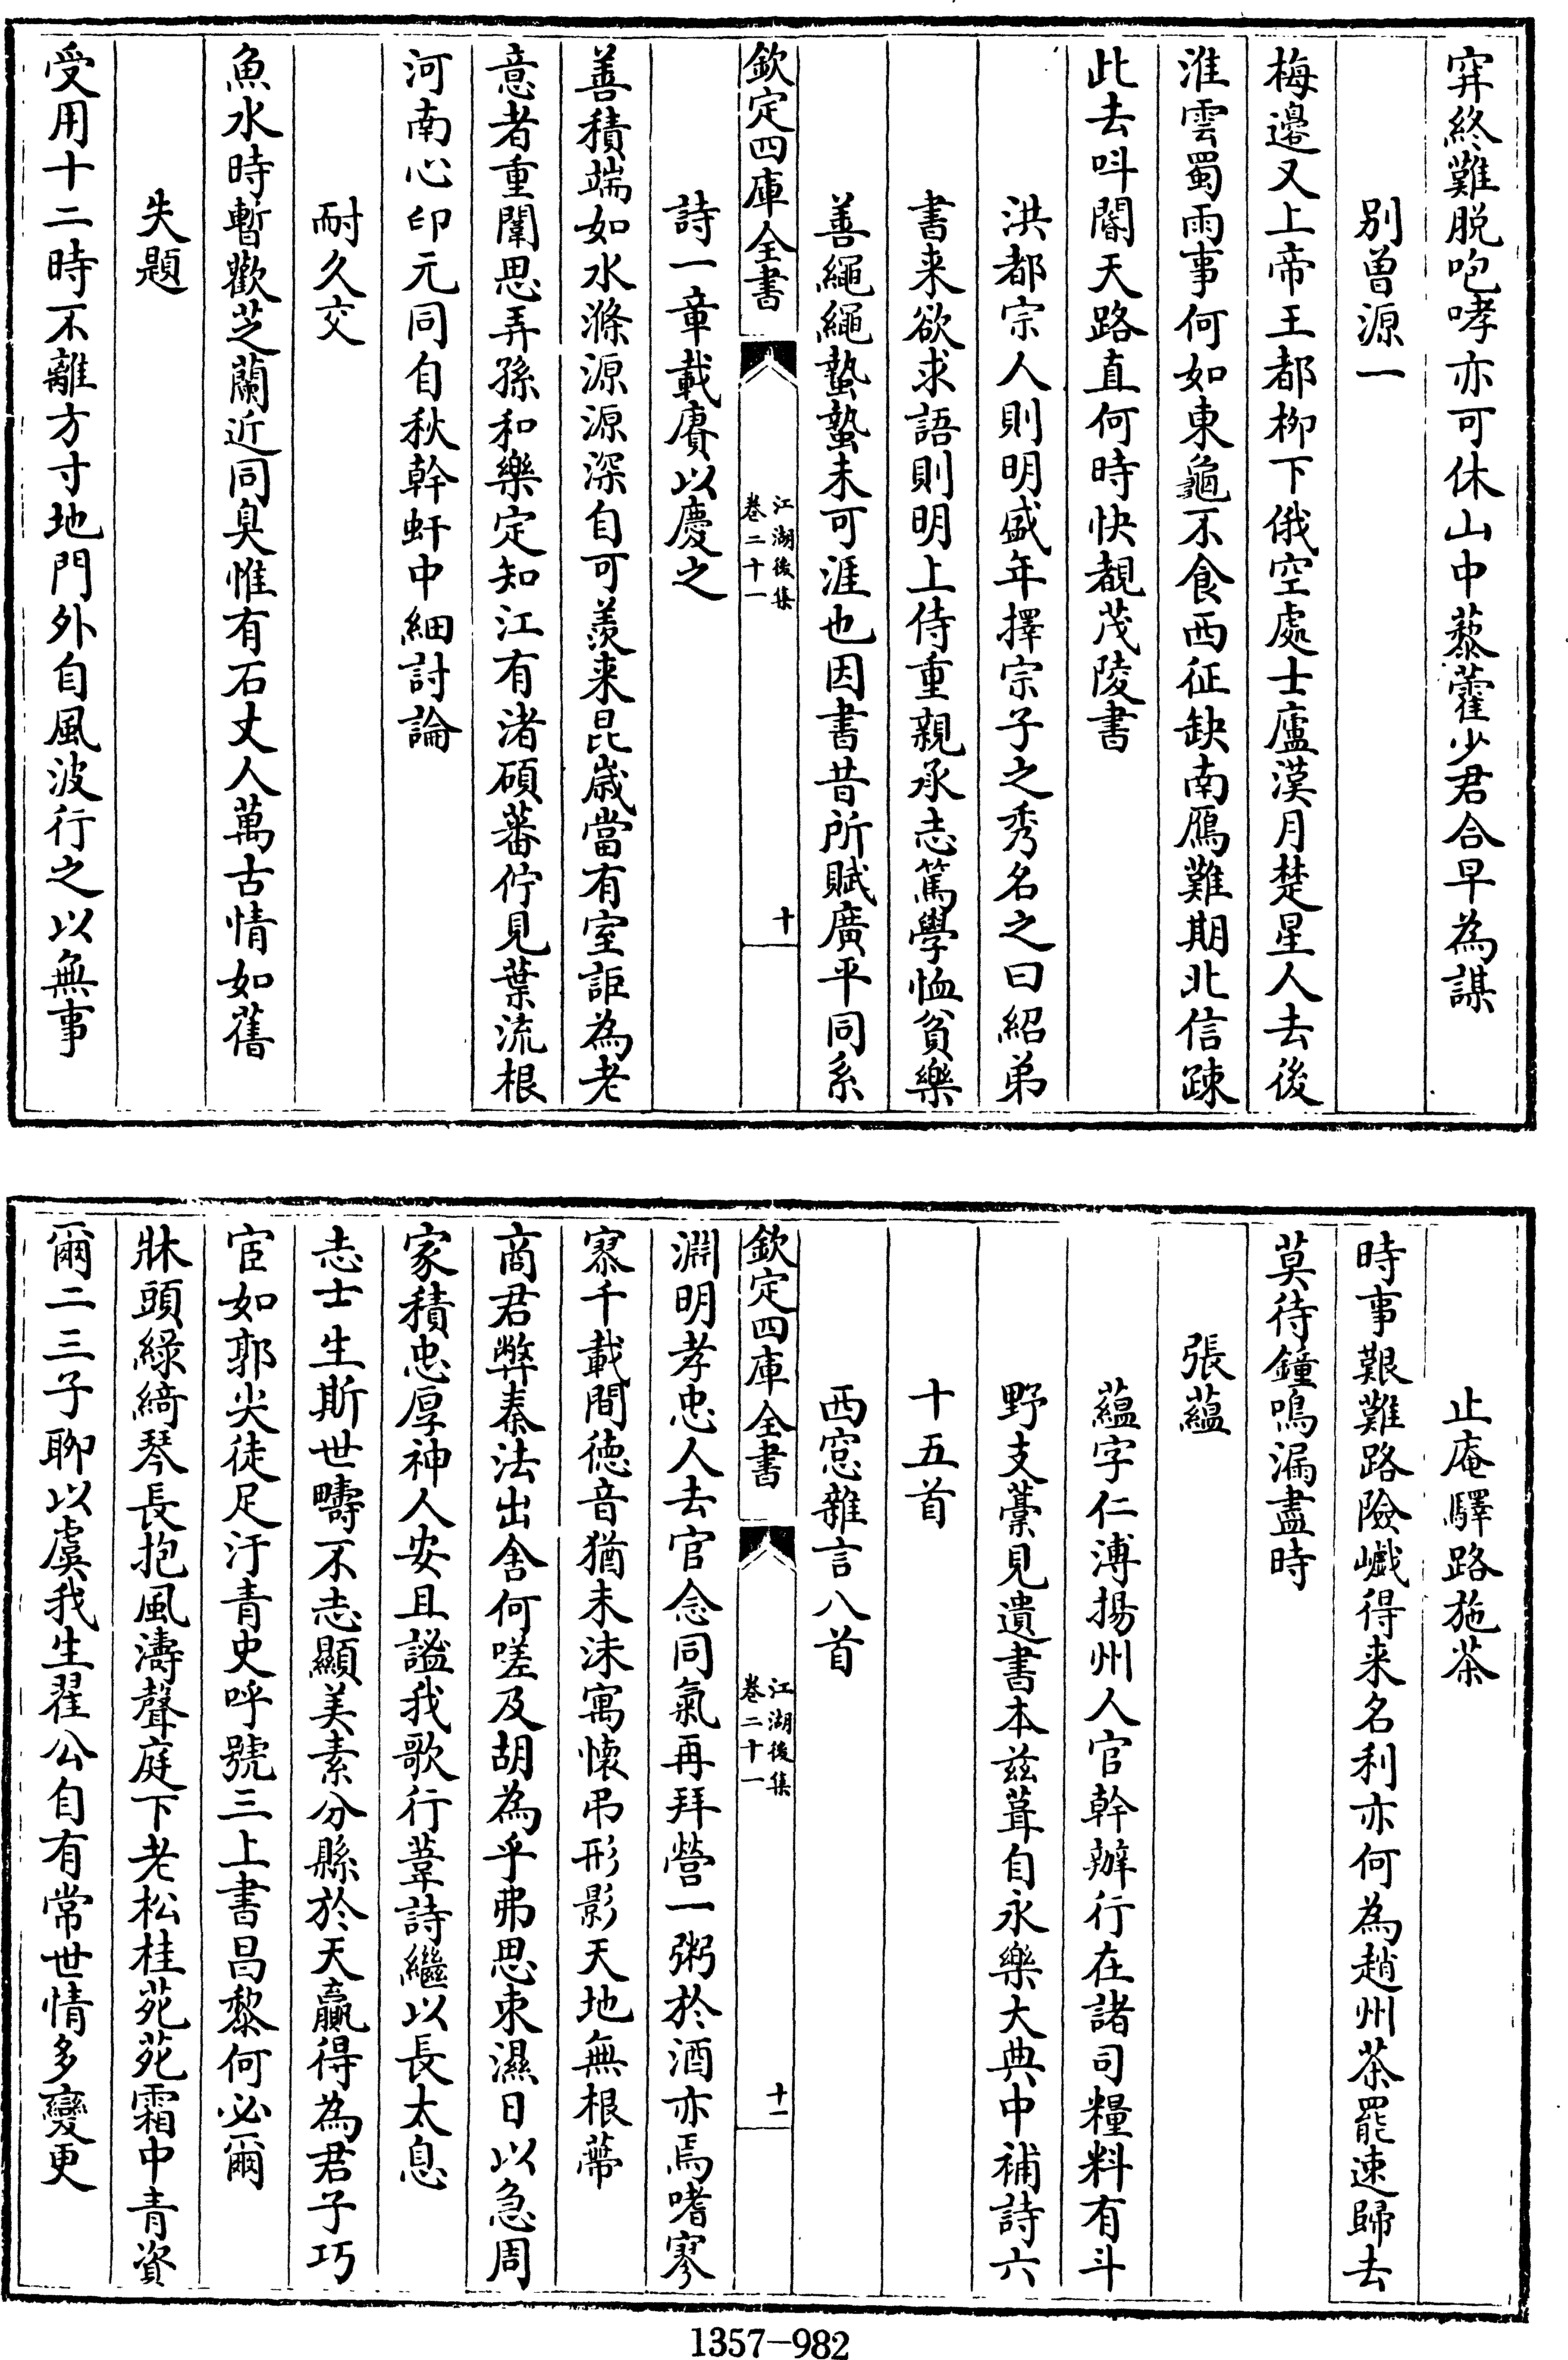 穽終難脱咆哮亦可休山中藜藿少君合早為謀
别曾源一
梅邉又上帝王都柳下俄空處士廬漢月楚星人去後
淮雲蜀雨事何如東龜不食西征缺南鴈難期北信疎
此去呌閽天路直何時快覩茂陵書
洪都宗人則明盛年擇宗子之秀名之曰紹弟
書来欲求語則明上侍重親承志篤學恤貧樂
善繩繩蟄蟄未可涯也因書昔所賦廣平同系
欽定四庫全書
江湖後集
卷二十一
十
詩一章載賡以慶之
善積端如水滌源源深自可羨来昆嵗當有室詎為老
意者重闈思弄孫和樂定知江有渚碩蕃佇見葉流根
河南心印元同自秋幹虷中細討論
耐久交
魚水時暫歡芝蘭近同臭惟有石丈人萬古情如舊
失題
受用十二時不離方寸地門外自風波行之以無事
止庵驛路施茶
時事艱難路險巇得来名利亦何為趙州茶罷速歸去
莫待鐘鳴漏盡時
張蘊
蘊字仁溥揚州人官幹辦行在諸司糧料有斗
野支藁見遺書本兹葺自永樂大典中補詩六
十五首
西窓雜言八首
欽定四庫全書
江湖後集
卷二十一
十一
淵明孝忠人去官念同氣再拜營一粥於酒亦焉嗜寥
寥千載間徳音猶未沬寓懷弔形影天地無根蔕
商君弊秦法出舍何嗟及胡為乎弗思束濕日以急周
家積忠厚神人安且謐我歌行葦詩繼以長太息
志士生斯世疇不志顯美素分縣於天贏得為君子巧
宦如郭尖徒足汙青史呼號三上書昌黎何必爾
牀頭緑綺琴長抱風濤聲庭下老松桂苑苑霜中青資
爾二三子聊以虞我生翟公自有常世情多變更
1357-982